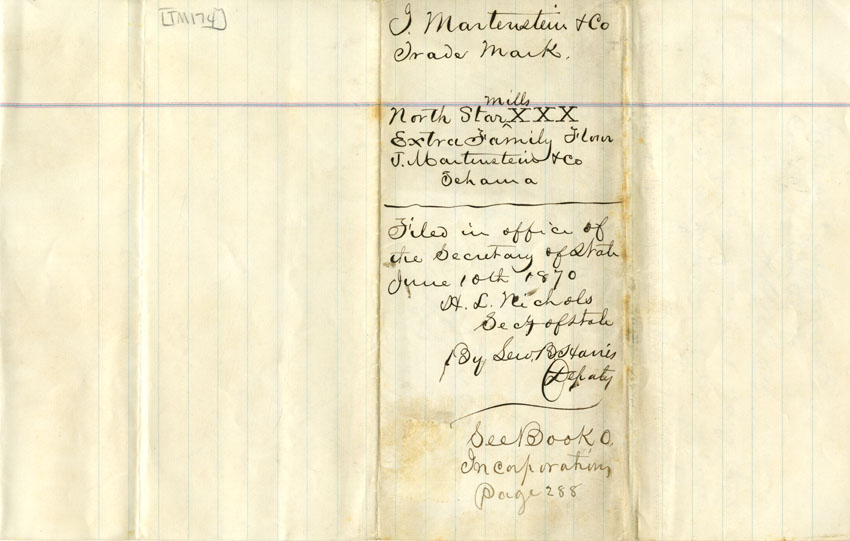 [TM174]
J. Martenstein & Co
Trade Mark.
mills
North Star XXX
Extra Family Flour
J. Martenstein & Co
Tehama
Filed in office of
the Secretary of State
June 10th 1870
H. L. Nichols
Secy of State
By Lew. B. Harris
Deputy
See Book O.
Incorporations
Page 288